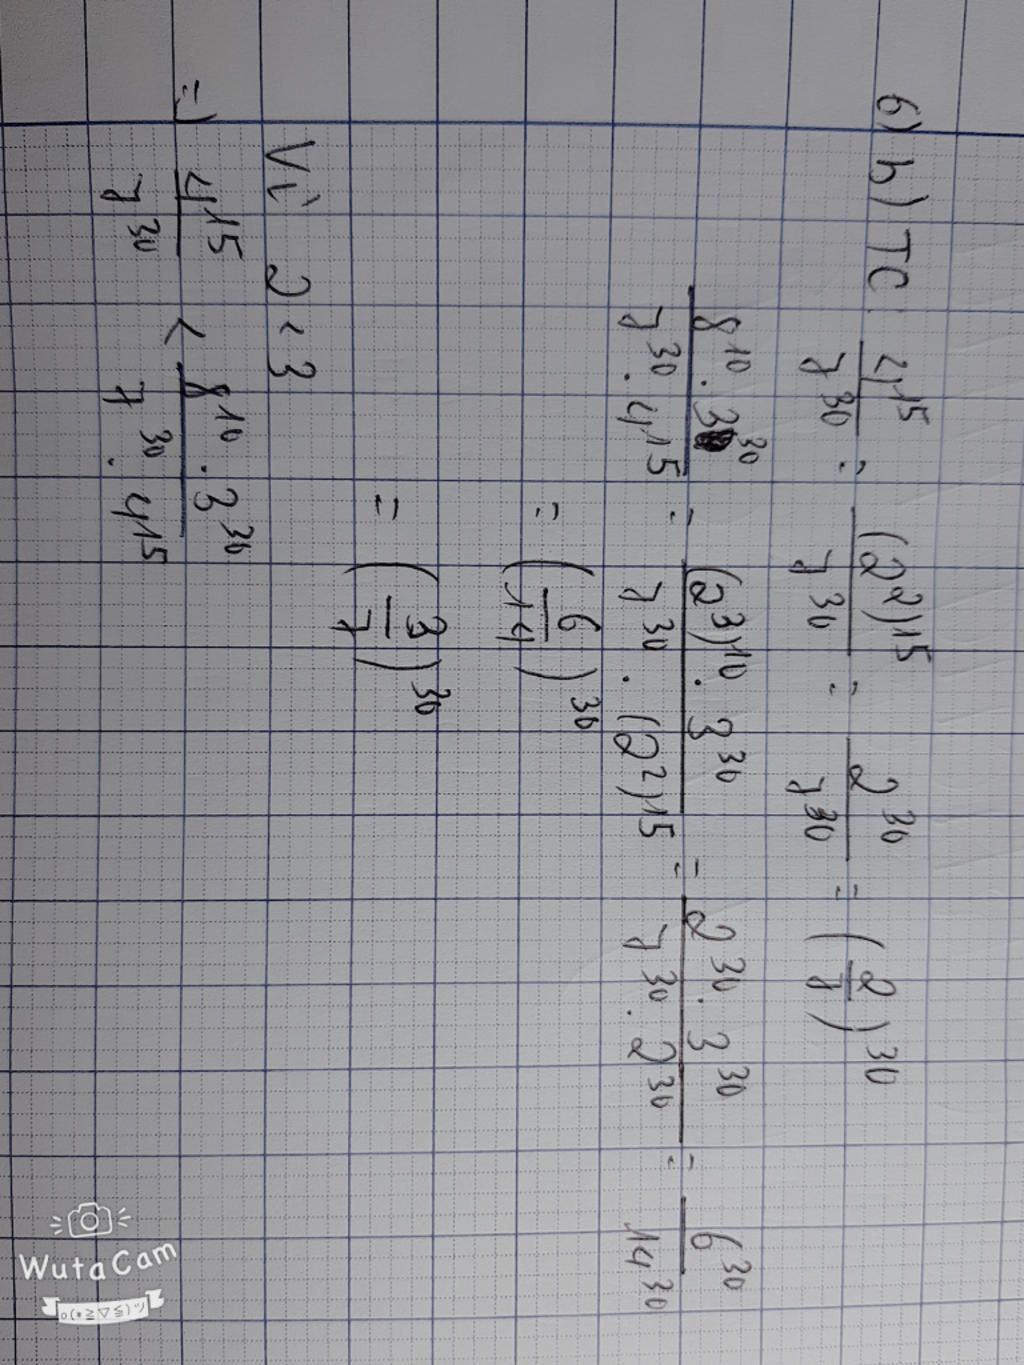 6) b) TC: 4^15/7^30 = (2^2)^15/7^30 = 2^30/7^30 = (2/7)^30
8^10 . 3^30/7^30 . 4^15 = (2^3)^10 . 3^30/7^30 . (2^2)^15 = 2^30 . 3^30/7^30 . 2^30 = 6^30/14^30
= (6/14)^30
= (3/7)^30
Vì 2 < 3
=) 4^15/7^30 < 8^10 . 3^30/7^30 . 4^15
WutaCam